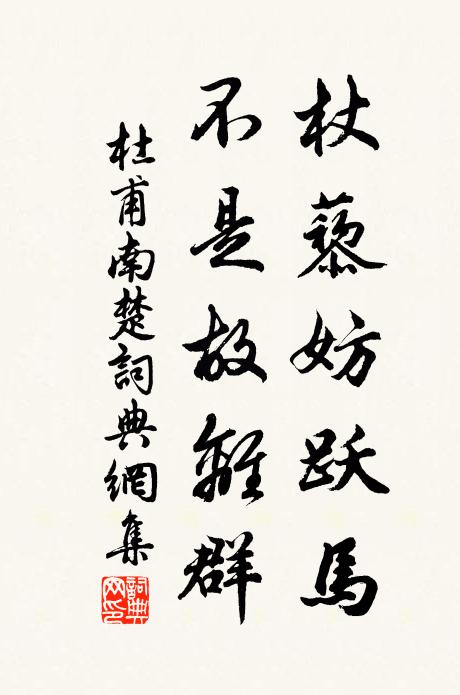 杖藜妨跃馬
不是故離群
杜甫南楚詞典網集
詞典網印